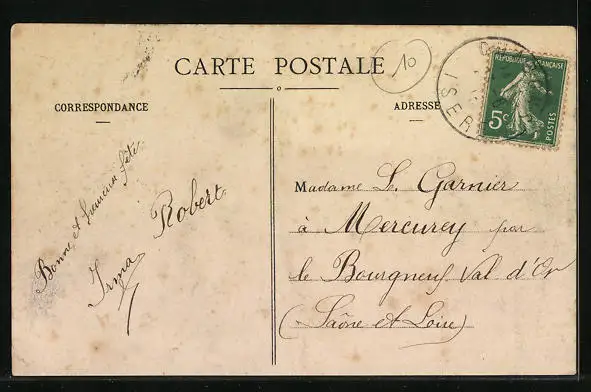 CARTE POSTALE
10
CORRESPONDANCE
ADRESSE
RÉPUBLIQUE FRANÇAISE
5c
POSTES
ISERE
Bonne et heureuse fête
Robert
Irma
Madame L. Garnier
à Mercurey par
le Bourgneuf Val d'Or
(Saône et Loire)